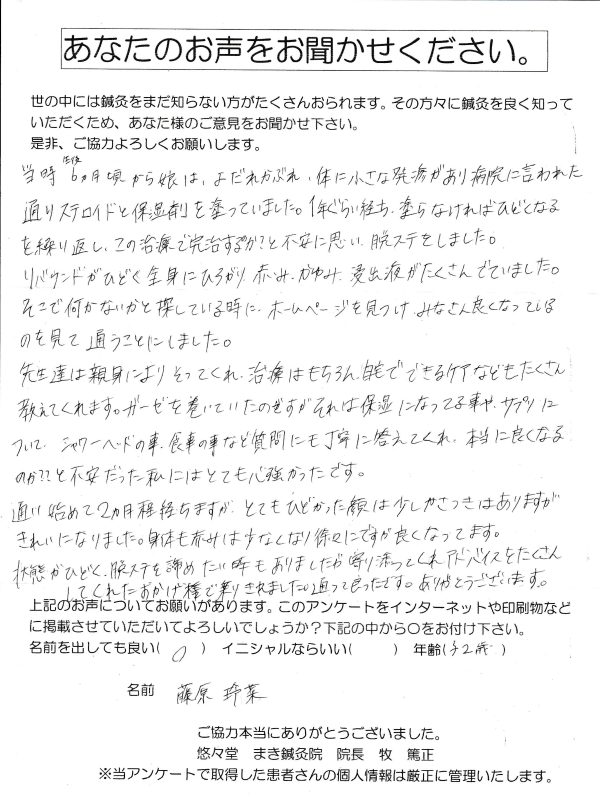 あなたのお声をお聞かせください。
世の中には鍼灸をまだ知らない方がたくさんおられます。その方々に鍼灸を良く知って
いただくため、あなた様のご意見をお聞かせ下さい。
是非、ご協力よろしくお願いします。
当時生後6ヵ月頃から娘は、よだれかぶれ、体に小さな発疹があり病院に言われた
通りステロイドと保湿剤を塗っていました。1年ぐらい経ち、塗らなければひどくなる
を繰り返し、この治療で完治するか?と不安に思い、脱ステをしました。
リバウンドがひどく全身にひろがり 赤み、かゆみ、浸出液がたくさんでていました。
そこで何かないかと探している時に、ホームページを見つけ、みなさん良くなっている
のを見て 通うことにしました。
先生達は親身によりそってくれ、治療はもちろん、自宅でできるケアなどもたくさん
教えてくれます。ガーゼを巻いていたのですがそれは保湿になってる事や、サプリに
ついて、シャワーヘッドの事、食事の事など質問にも丁寧に答えてくれ、本当に良くなる
のか??と不安だった私にはとても心強かったです。
通い始めて2ヵ月程経ちますが、とてもひどかった顔は少しかさつきはありますが
きれいになりました。身体も赤みは少なくなり徐々にですが良くなってます。
状態がひどく、脱ステを諦めたい時もありましたが寄り添ってくれアドバイスをたくさん
してくれたおかげ様で乗りきれました。通って良かったです。ありがとうございます。
上記のお声についてお願いがあります。このアンケートをインターネットや印刷物など
に掲載させていただいてよろしいでしょうか?下記の中から○をお付け下さい。
名前を出しても良い(○) イニシャルならいい( ) 年齢(子2歳)
名前 藤原 玲菜
ご協力本当にありがとうございました。
悠々堂 まき鍼灸院 院長 牧 篤正
※当アンケートで取得した患者さんの個人情報は厳正に管理いたします。